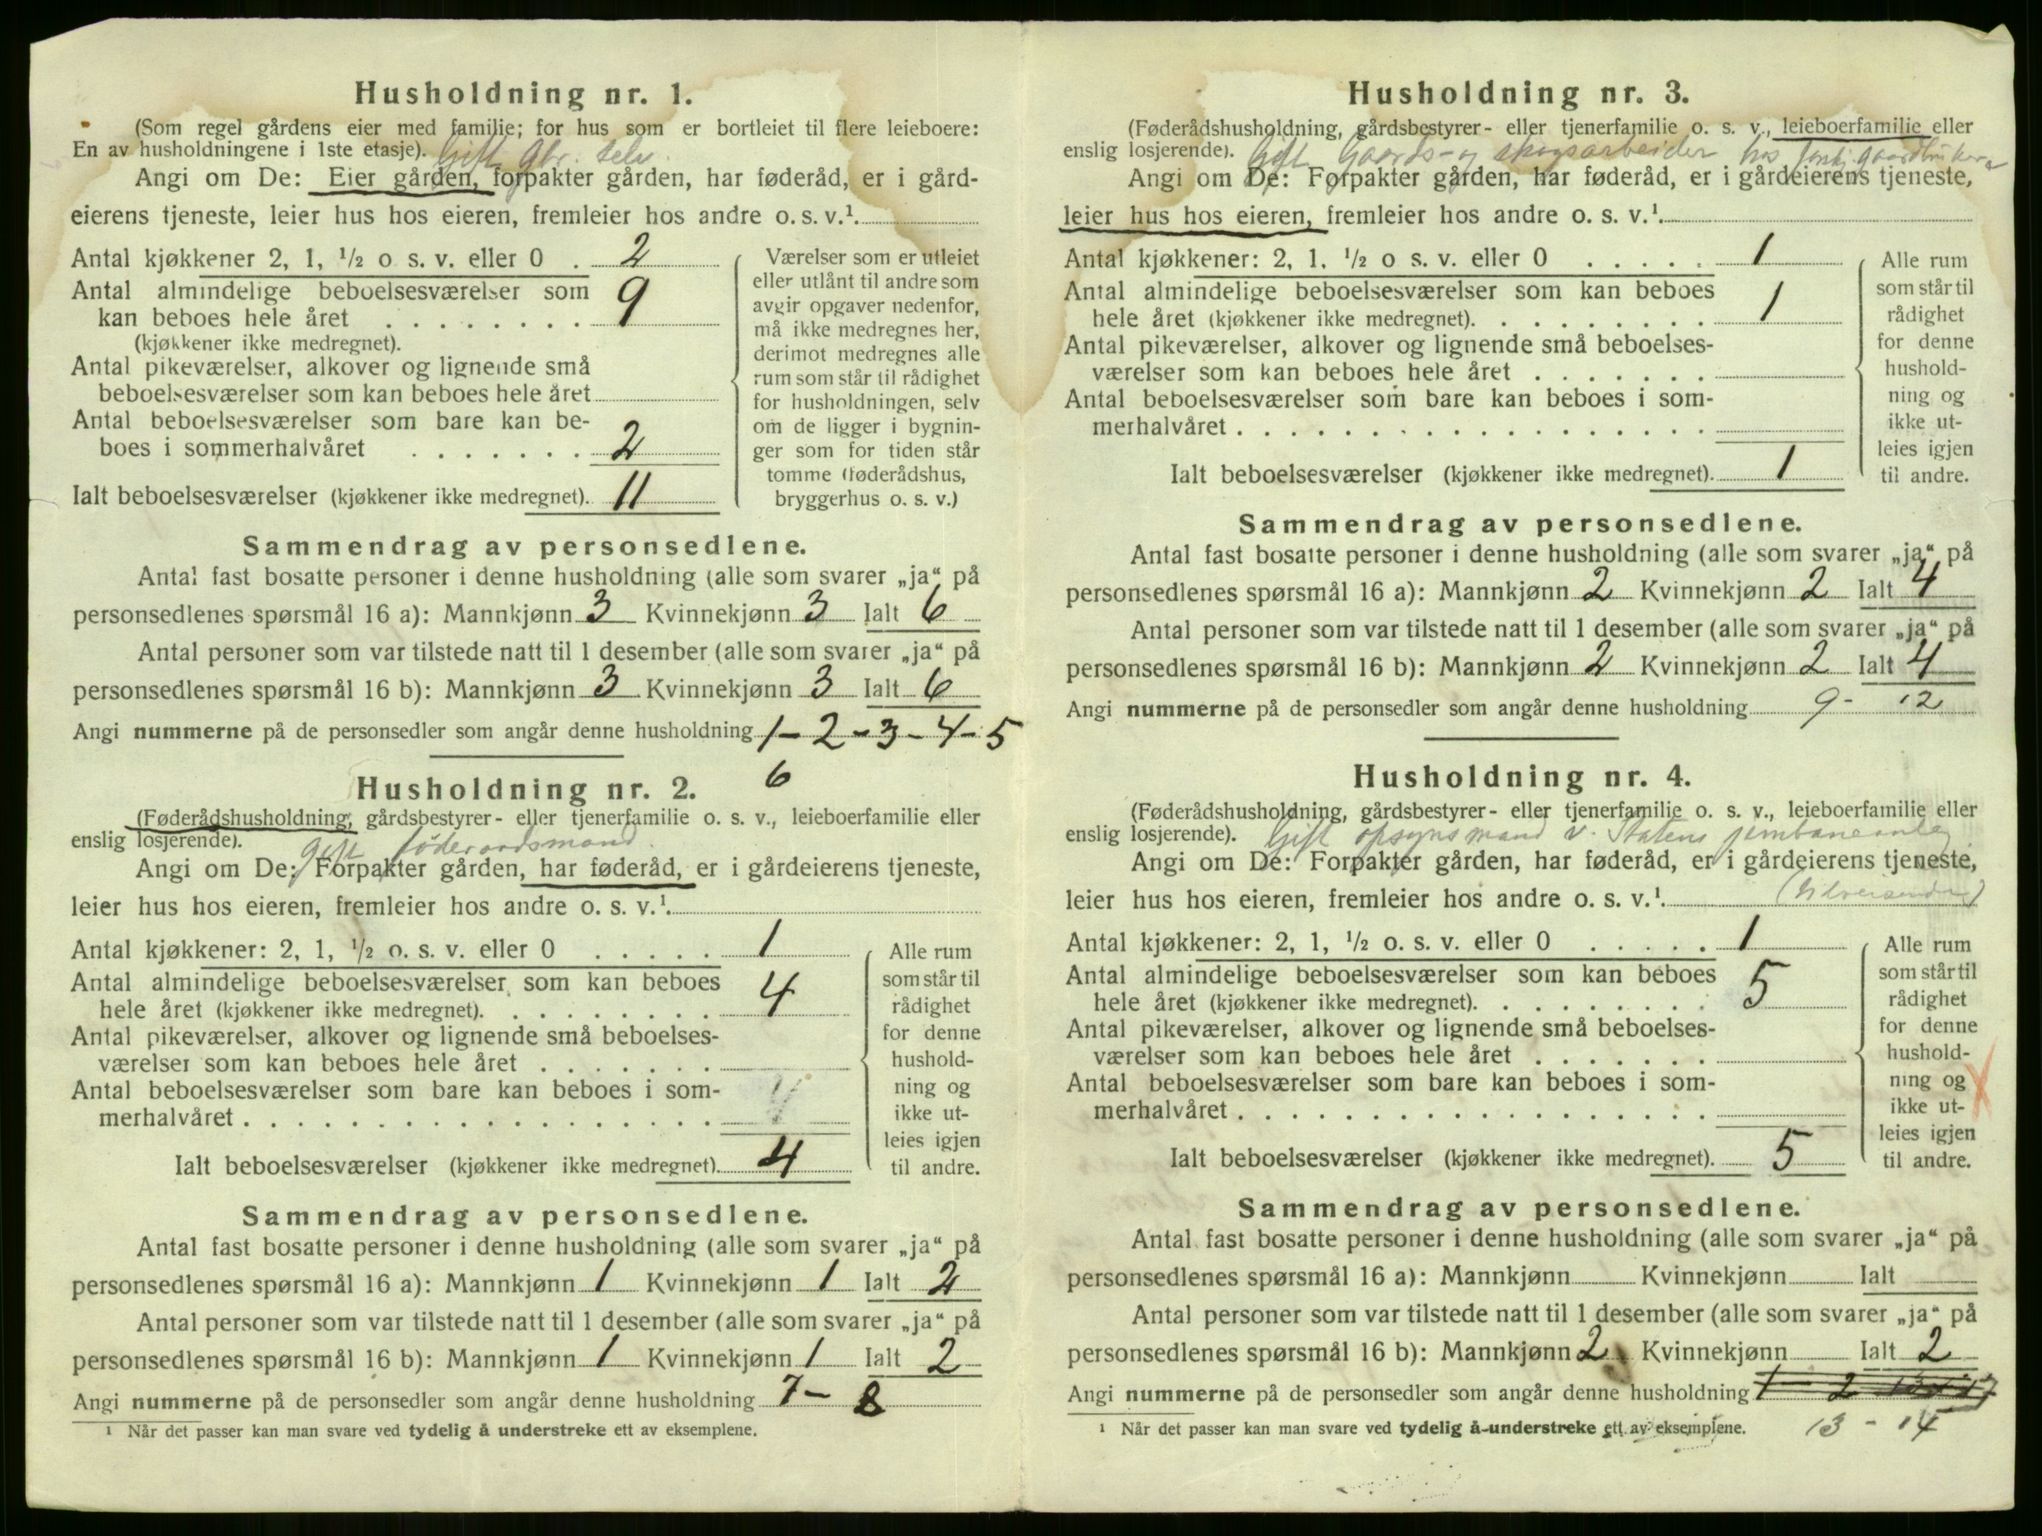 Husholdning nr. 1.
(Som regel gårdens eier med familie; for hus som er bortleiet til flere leieboere:
En av husholdningene i 1ste etasje). Gift, gbr. selv.
Angi om De: Eier gården, forpakter gården, har føderåd, er i gård-
eierens tjeneste, leier hus hos eieren, fremleier hos andre o. s. v.¹
Antal kjøkkener 2, 1, ½ o s. v. eller 0 . 2
Antal almindelige beboelsesværelser som
kan beboes hele året . . . . . . . . 9
(kjøkkener ikke medregnet).
Antal pikeværelser, alkover og lignende små
beboelsesværelser som kan beboes hele året
Antal beboelsesværelser som bare kan be-
boes i sommerhalvåret . . . . . . . 2
Ialt beboelsesværelser (kjøkkener ikke medregnet). 11
Værelser som er utleiet
eller utlånt til andre som
avgir opgaver nedenfor,
må ikke medregnes her,
derimot medregnes alle
rum som står til rådighet
for husholdningen, selv
om de ligger i bygnin-
ger som for tiden står
tomme (føderådshus,
bryggerhus o. s. v.)
Sammendrag av personsedlene.
Antal fast bosatte personer i denne husholdning (alle som svarer „ja“ på
personsedlenes spørsmål 16 a): Mannkjønn 3 Kvinnekjønn 3 Ialt 6
Antal personer som var tilstede natt til 1 desember (alle som svarer „ja“ på
personsedlenes spørsmål 16 b): Mannkjønn 3 Kvinnekjønn 3 Ialt 6
Angi nummerne på de personsedler som angår denne husholdning 1 - 2 - 3 - 4 - 5
6
Husholdning nr. 2.
(Føderådshusholdning, gårdsbestyrer- eller tjenerfamilie o. s. v., leieboerfamilie eller
enslig losjerende). gift föderaadsmand.
Angi om De: Forpakter gården, har føderåd, er i gårdeierens tjeneste,
leier hus hos eieren, fremleier hos andre o. s. v.¹
Antal kjøkkener: 2, 1, ½ o. s. v. eller 0 . . . . . 1
Antal almindelige beboelsesværelser som kan beboes
hele året (kjøkkener ikke medregnet). . . . . . . . . 4
Antal pikeværelser, alkover og lignende små beboelses-
værelser som kan beboes hele året . . . . . . .
Antal beboelsesværelser som bare kan beboes i som-
merhalvåret . . . . . . . . . . . . . . . . . 4
Ialt beboelsesværelser (kjøkkener ikke medregnet). 4
Alle rum
som står til
rådighet
for denne
hushold-
ning og
ikke ut-
leies igjen
til andre.
Sammendrag av personsedlene.
Antal fast bosatte personer i denne husholdning (alle som svarer „ja“ på
personsedlenes spørsmål 16 a): Mannkjønn 1 Kvinnekjønn 1 Ialt 2
Antal personer som var tilstede natt til 1 desember (alle som svarer „ja“ på
personsedlenes spørsmål 16 b): Mannkjønn 1 Kvinnekjønn 1 Ialt 2
Angi nummerne på de personsedler som angår denne husholdning 7 - 8
¹ Når det passer kan man svare ved tydelig å understreke ett av eksemplene.
Husholdning nr. 3.
(Føderådshusholdning, gårdsbestyrer- eller tjenerfamilie o. s. v., leieboerfamilie eller
enslig losjerende). Gift Gaards- og skogsarbeider hos forskj. gaardbrukere
Angi om De: Forpakter gården, har føderåd, er i gårdeierens tjeneste,
leier hus hos eieren, fremleier hos andre o. s. v.¹
Antal kjøkkener: 2, 1, ½ o s. v. eller 0 . . . . . 1
Antal almindelige beboelsesværelser som kan beboes
hele året (kjøkkener ikke medregnet). . . . . . . . . 1
Antal pikeværelser, alkover og lignende små beboelses-
værelser som kan beboes hele året . . . . . . .
Antal beboelsesværelser som bare kan beboes i som-
merhalvåret . . . . . . . . . . . . . . . . .
Ialt beboelsesværelser (kjøkkener ikke medregnet). 1
Alle rum
som står til
rådighet
for denne
hushold-
ning og
ikke ut-
leies igjen
til andre.
Sammendrag av personsedlene.
Antal fast bosatte personer i denne husholdning (alle som svarer „ja“ på
personsedlenes spørsmål 16 a): Mannkjønn 2 Kvinnekjønn 2 Ialt 4
Antal personer som var tilstede natt til 1 desember (alle som svarer „ja“ på
personsedlenes spørsmål 16 b): Mannkjønn 2 Kvinnekjønn 2 Ialt 4
Angi nummerne på de personsedler som angår denne husholdning 9 - 12
Husholdning nr. 4.
(Føderådshusholdning, gårdsbestyrer- eller tjenerfamilie o. s. v., leieboerfamilie eller
enslig losjerende). Gift opsynsmand v. Statens jernbaneanlæg
Angi om De: Forpakter gården, har føderåd, er i gårdeierens tjeneste,
leier hus hos eieren, fremleier hos andre o. s. v.¹
Antal kjøkkener: 2, 1, ½ o. s. v. eller 0 . . . . . 1
Antal almindelige beboelsesværelser som kan beboes
hele året (kjøkkener ikke medregnet). . . . . . . . . 5
Antal pikeværelser, alkover og lignende små beboelses-
værelser som kan beboes hele året . . . . . . .
Antal beboelsesværelser som bare kan beboes i som-
merhalvåret . . . . . . . . . . . . . . . . .
Ialt beboelsesværelser (kjøkkener ikke medregnet). 5
Alle rum
som står til
rådighet
for denne
hushold-
ning og
ikke ut-
leies igjen
til andre.
Sammendrag av personsedlene.
Antal fast bosatte personer i denne husholdning (alle som svarer „ja“ på
personsedlenes spørsmål 16 a): Mannkjønn Kvinnekjønn Ialt
Antal personer som var tilstede natt til 1 desember (alle som svarer „ja“ på
personsedlenes spørsmål 16 b): Mannkjønn 2 Kvinnekjønn Ialt 2
Angi nummerne på de personsedler som angår denne husholdning 1 - 2
13 - 14
¹ Når det passer kan man svare ved tydelig å understreke ett av eksemplene.